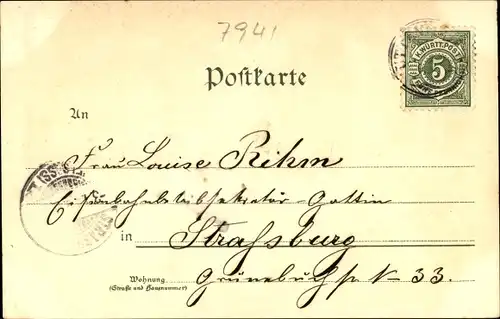 7941
K. WÜRTT. POST
5
Postkarte
An
Frau Louise Rihm
Eisenbahnbetriebssekretär-Gattin
in Straßburg
Wohnung
(Straße und Hausnummer)
N. 33.